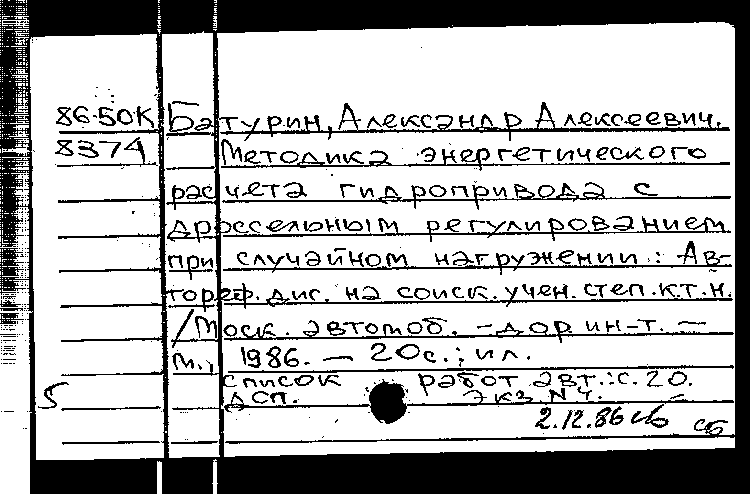 86-50К Батурин, Александр Алексеевич.
8374 Методика энергетического
расчета гидропривода с
дроссельным регулированием
при случайном нагружении: Ав-
тореф. дис. на соиск. учен. степ. к.т.н.
/Моск. автомоб. -дор ин-т. —
М., 1986. — 20с.; ил.
Список работ авт.: с. 20.
5 ДСП. Экз N4.
2.12.86